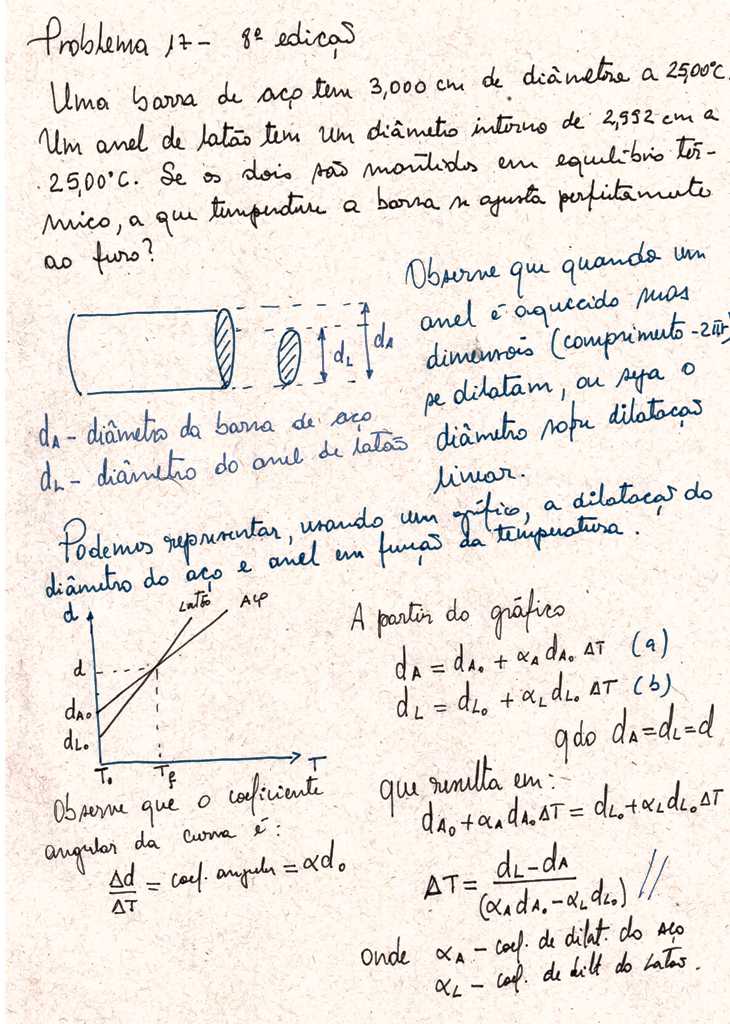 Problema 17 - 8ª edição
Uma barra de aço tem 3,000 cm de diâmetro a 25,00°C.
Um anel de latão tem um diâmetro interno de 2,992 cm a
25,00°C. Se os dois são mantidos em equilíbrio tér-
mico, a que temperatura a barra se ajusta perfeitamente
ao furo?
Observe que quando um
anel é aquecido suas
dimensões (comprimento - 2πr)
se dilatam, ou seja o
diâmetro sofre dilatação
linear.
d_L
d_A
d_A - diâmetro da barra de aço
d_L - diâmetro do anel de latão
Podemos representar, usando um gráfico, a dilatação do
diâmetro do aço e anel em função da temperatura.
d
Latão Aço
d
d_A₀
d_L₀
T₀ T_f T
Observe que o coeficiente
angular da curva é:
Δd/ΔT = coef. angular = αd₀
A partir do gráfico
d_A = d_A₀ + α_A d_A₀ ΔT (a)
d_L = d_L₀ + α_L d_L₀ ΔT (b)
qdo d_A = d_L = d
que resulta em:
d_A₀ + α_A d_A₀ ΔT = d_L₀ + α_L d_L₀ ΔT
ΔT = (d_L - d_A)/(α_A d_A₀ - α_L d_L₀) //
onde α_A - coef. de dilat. do aço
α_L - coef. de dilt do Latão.